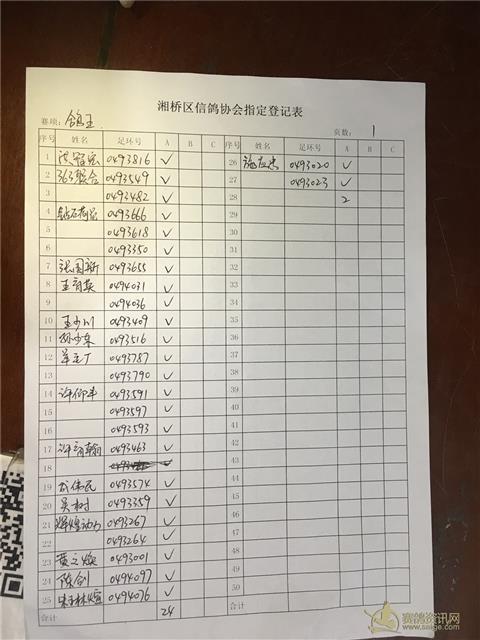 湘桥区信鸽协会指定登记表
赛项: 鸽王 页数: 1
序号 姓名 足环号 A B C 序号 姓名 足环号 A B C
1 0493816 ✓ 26 0493020 ✓
2 363联合 0493549 ✓ 27 0493023 ✓
3 0493482 ✓ 28 2
4 0493666 ✓ 29
5 0493618 ✓ 30
6 0493350 ✓ 31
7 张国新 0493655 ✓ 32
8 王育英 0494031 ✓ 33
9 0494036 ✓ 34
10 王少川 0493409 ✓ 35
11 孙少东 0493516 ✓ 36
12 0493787 ✓ 37
13 0493790 ✓ 38
14 许仰丰 0493591 ✓ 39
15 0493597 ✓ 40
16 0493593 ✓ 41
17 许育翰 0493463 ✓ 42
18 43
19 0493574 ✓ 44
20 吴树 0493359 ✓ 45
21 辉煌动力 0493267 ✓ 46
22 0493264 ✓ 47
23 黄文焕 0493001 ✓ 48
24 陈创 0494097 ✓ 49
25 0494076 ✓ 50
合计 24 合计
赛鸽资讯网
www.saige.com